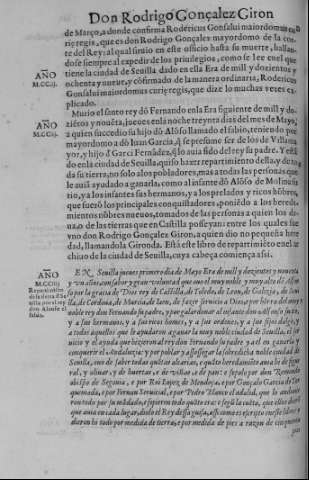 Don Rodrigo Gonçalez Giron
de Março, a donde confirma Rodericus Gonsalui maiordomus cu-
riç regis, que es don Rodrigo Gonçales mayordomo de la cor-
te del Rey: al qual siruio en este officio hasta su muerte, hallan-
dose siempre al expedir de los priuilegios, como se lee en el que
AÑO
M.CCij.
tiene la ciudad de Seuilla dado en ella Era de mill y dozientos y
ochenta y nueue, y cõfirmado de la manera ordinaria, Rodericus
Gonsalui maiordomus curiç regis, que dize lo muchas vezes ex-
plicado.
Murio el santo rey dõ Fernando en la Era siguiente de mill y do-
AÑO
M.CCij.
zientos y nouẽta, jueues en la noche treynta dias del mes de Mayo,
a quien succedio su hijo dõ Alõso llamado el sabio, teniendo por
mayordomo a dõ Iuan Garcia, q̃ se presume ser de los de Villama
yor, y hijo d̃ Garci Fernãdez, q̃ lo auia sido del rey su padre. Y estã
do en la ciudad de Seuilla, quiso hazer repartimiento della, y de to
da su tierra, no solo a los pobladores, mas a todas las personas que
le auiã ayudado a ganarla, como al infante dõ Alõso de Molina su
tio, ya los infantes sus hermanos, y a los prelados y ricos hõbres,
que fuerõ los principales conquistadores, poniẽdo a los hereda-
mientos nõbres nueuos, tomados de las personas a quien los da-
ua, o de las tierras que en Castilla posseyan: entre los quales fue
vno don Rodrigo Gonçalez Giron, a quien dio no pequeña here
dad, llamandola Gironda. Està este libro de repartimiẽto en el ar
chiuo de la ciudad de Seuilla, cuya cabeça comiença assi.
AÑO
M.CCiij
Repartimiẽto
de Seuilla
por el rey
don Alonso el
sabio.
EN Seuilla jueues primero dia de Mayo Era de mill y dozientos y nouenta
y vn años, con sabor y gran voluntad que ouo el muy noble y muy alto dõ Alfon
so por la gracia de Dios rey de Castilla, de Toledo, de Leon, de Galizia, de Seui
lla, de Cordoua, de Murcia, de Iaen, de fazer seruicio a Dios, e por honra del muy
noble rey don Fernando su padre, y por galardonar al infante don Alfonso su tio,
y a sus hermanos, y a sus ricos homes, y a sus ordenes, y a sus fijos dalgo, y
a todos aquellos que le ayudaron a ganar la muy noble ciudad de Seuilla, el ser
uicio y el ayuda que fizieron al rey don Fernando su padre y a el en ganarla y
conquerir el Andaluzia: y por poblar y assossegar la sobredicha noble ciudad de
Seuilla, ouo de saber todas quãtas alcarias, e quãtos heredamiẽtos auia de figue
ral, y oliuar, e de huertas, e de viñas e de pan: e sopolo por don Remondo
obispo de Segouia, e por Rui Lopez de Mendoça, e por Gonçalo Garcia de Tor
quemada, e por Fernan Seruicial, e por Pedro Blanco el adalid, que lo anduuie
ron todo por su mãdado, e sopieron todo quãto era: e segũ la cuẽta, que ellos dixerõ
que auia en cada lugar, diolo el Rey dessa guisa, assi como es escripto en este libro: e
dieron lo todo por medida de tierra, e por medida de pies a razon de cinquenta
pies